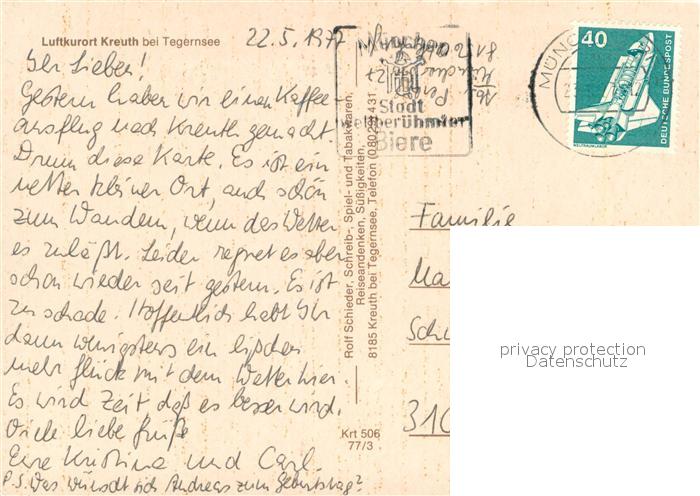 Luftkurort Kreuth bei Tegernsee
22.5.1977
Ihr Lieben!
Gestern haben wir einen Kaffee-
ausflug nach Kreuth gemacht.
Drum diese Karte. Es ist ein
netter kleiner Ort, auch schön
zum Wandern, wenn das Wetter
es zuläßt. Leider regnet es aber
schon wieder seit gestern. Es ist
zu schade. Hoffentlich habt Ihr
dann wenigstens ein bißchen
mehr Glück mit dem Wetter hier.
Es wird Zeit daß es besser wird.
Viele liebe Grüße
Eure Kristina und Carl.
P.S. Was wünscht sich Andreas zum Geburtstag?
Rolf Schieder, Schreib-, Spiel- und Tabakwaren,
Reiseandenken, Süßigkeiten,
8185 Kreuth bei Tegernsee, Telefon (08029) 1431
Krt 506
77/3
München
Stadt
weltberühmter
Biere
MÜNC
40
DEUTSCHE BUNDESPOST
WELTRAUMLABOR
Familie
Ma
Sch
310
privacy protection
Datenschutz